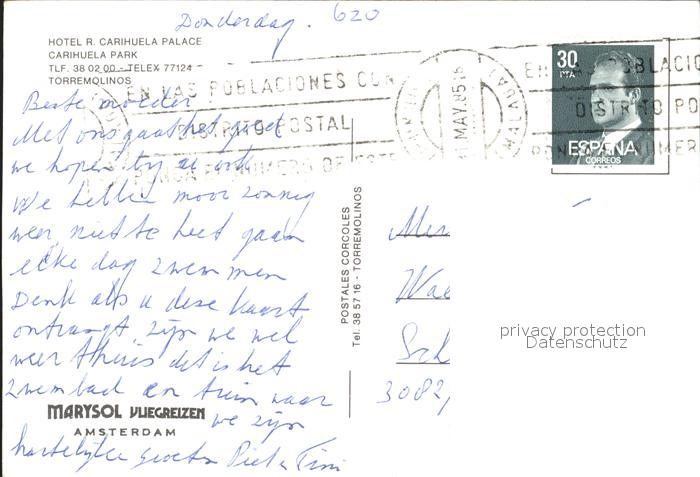 Donderdag. 620
HOTEL R. CARIHUELA PALACE
CARIHUELA PARK
TLF. 38 02 00 - TELEX 77124
TORREMOLINOS
Beste moeder
Met ons gaat het goed
we hopen bij u ook
We hebben mooi zonnig
weer, niet te heet gaan
elke dag zwemmen
Denk als u deze kaart
ontvangt, zijn we wel
weer thuis dit is het
zwembad en tuin waar
we zijn
hartelijke groeten Piet en Tini
MARYSOL VLIEGREIZEN
AMSTERDAM
POSTALES CORCOLES
Tel. 38 57 16 - TORREMOLINOS
EN LAS POBLACIONES CON
DISTRITO POSTAL
PONGA EL NUMERO DE ESTE
MAY. 85
MALAGA
30
PTA
ESPAÑA
CORREOS
POBLACIO
DISTRITO PO
NUMER
3082,
privacy protection
Datenschutz